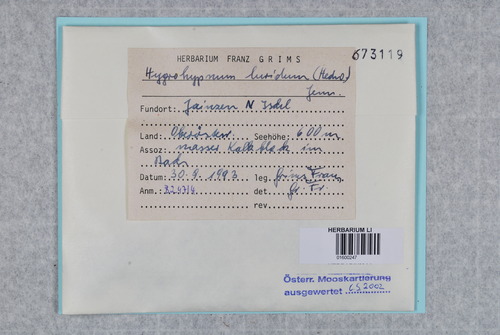 HERBARIUM FRANZ GRIMS
673119
Hygrohypnum luridum (Hedw.)
Jenn.
Fundort: Jainzen N Ischl
Land: Oberöster Seehöhe: 600 m
Assoz: nasser Kalkblock im
Bach
Datum: 30.9.1993 leg. Grims Franz
Anm.: det. Gr. Fr.
rev.
HERBARIUM LI
01600247
Österr. Mooskartierung
ausgewertet 2002